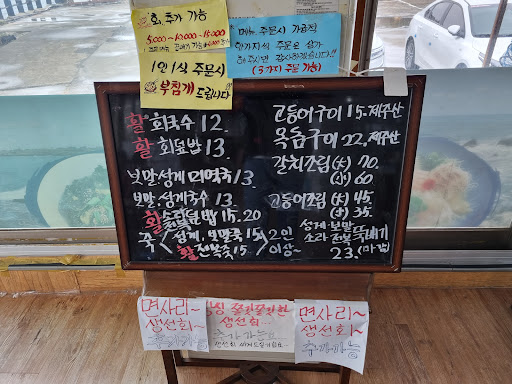 회, 추가 가능
5000~10,000~15000
1인 1식 주문시
부침개 드립니다
메뉴 주문시 가급적
한가지씩 주문은 삼가
해주시면 감사하겠습니다!!
(3가지 주문 가능)
활 회국수 12.
활 회덮밥 13.
보말.성게국수 13.
죽
성게, 보말죽 15
활 전복죽 15
2인
이상~
고등어구이 15. 제주산
옥돔구이 22. 제주산
갈치조림 (大) 70.
(小) 60
고등어조림 (大) 45.
(小) 35.
성게·보말
소라 전복 뚝배기
23.
면사리~
생선회~
생선회...
추가 가능
면사리~
생선회~
추가가능